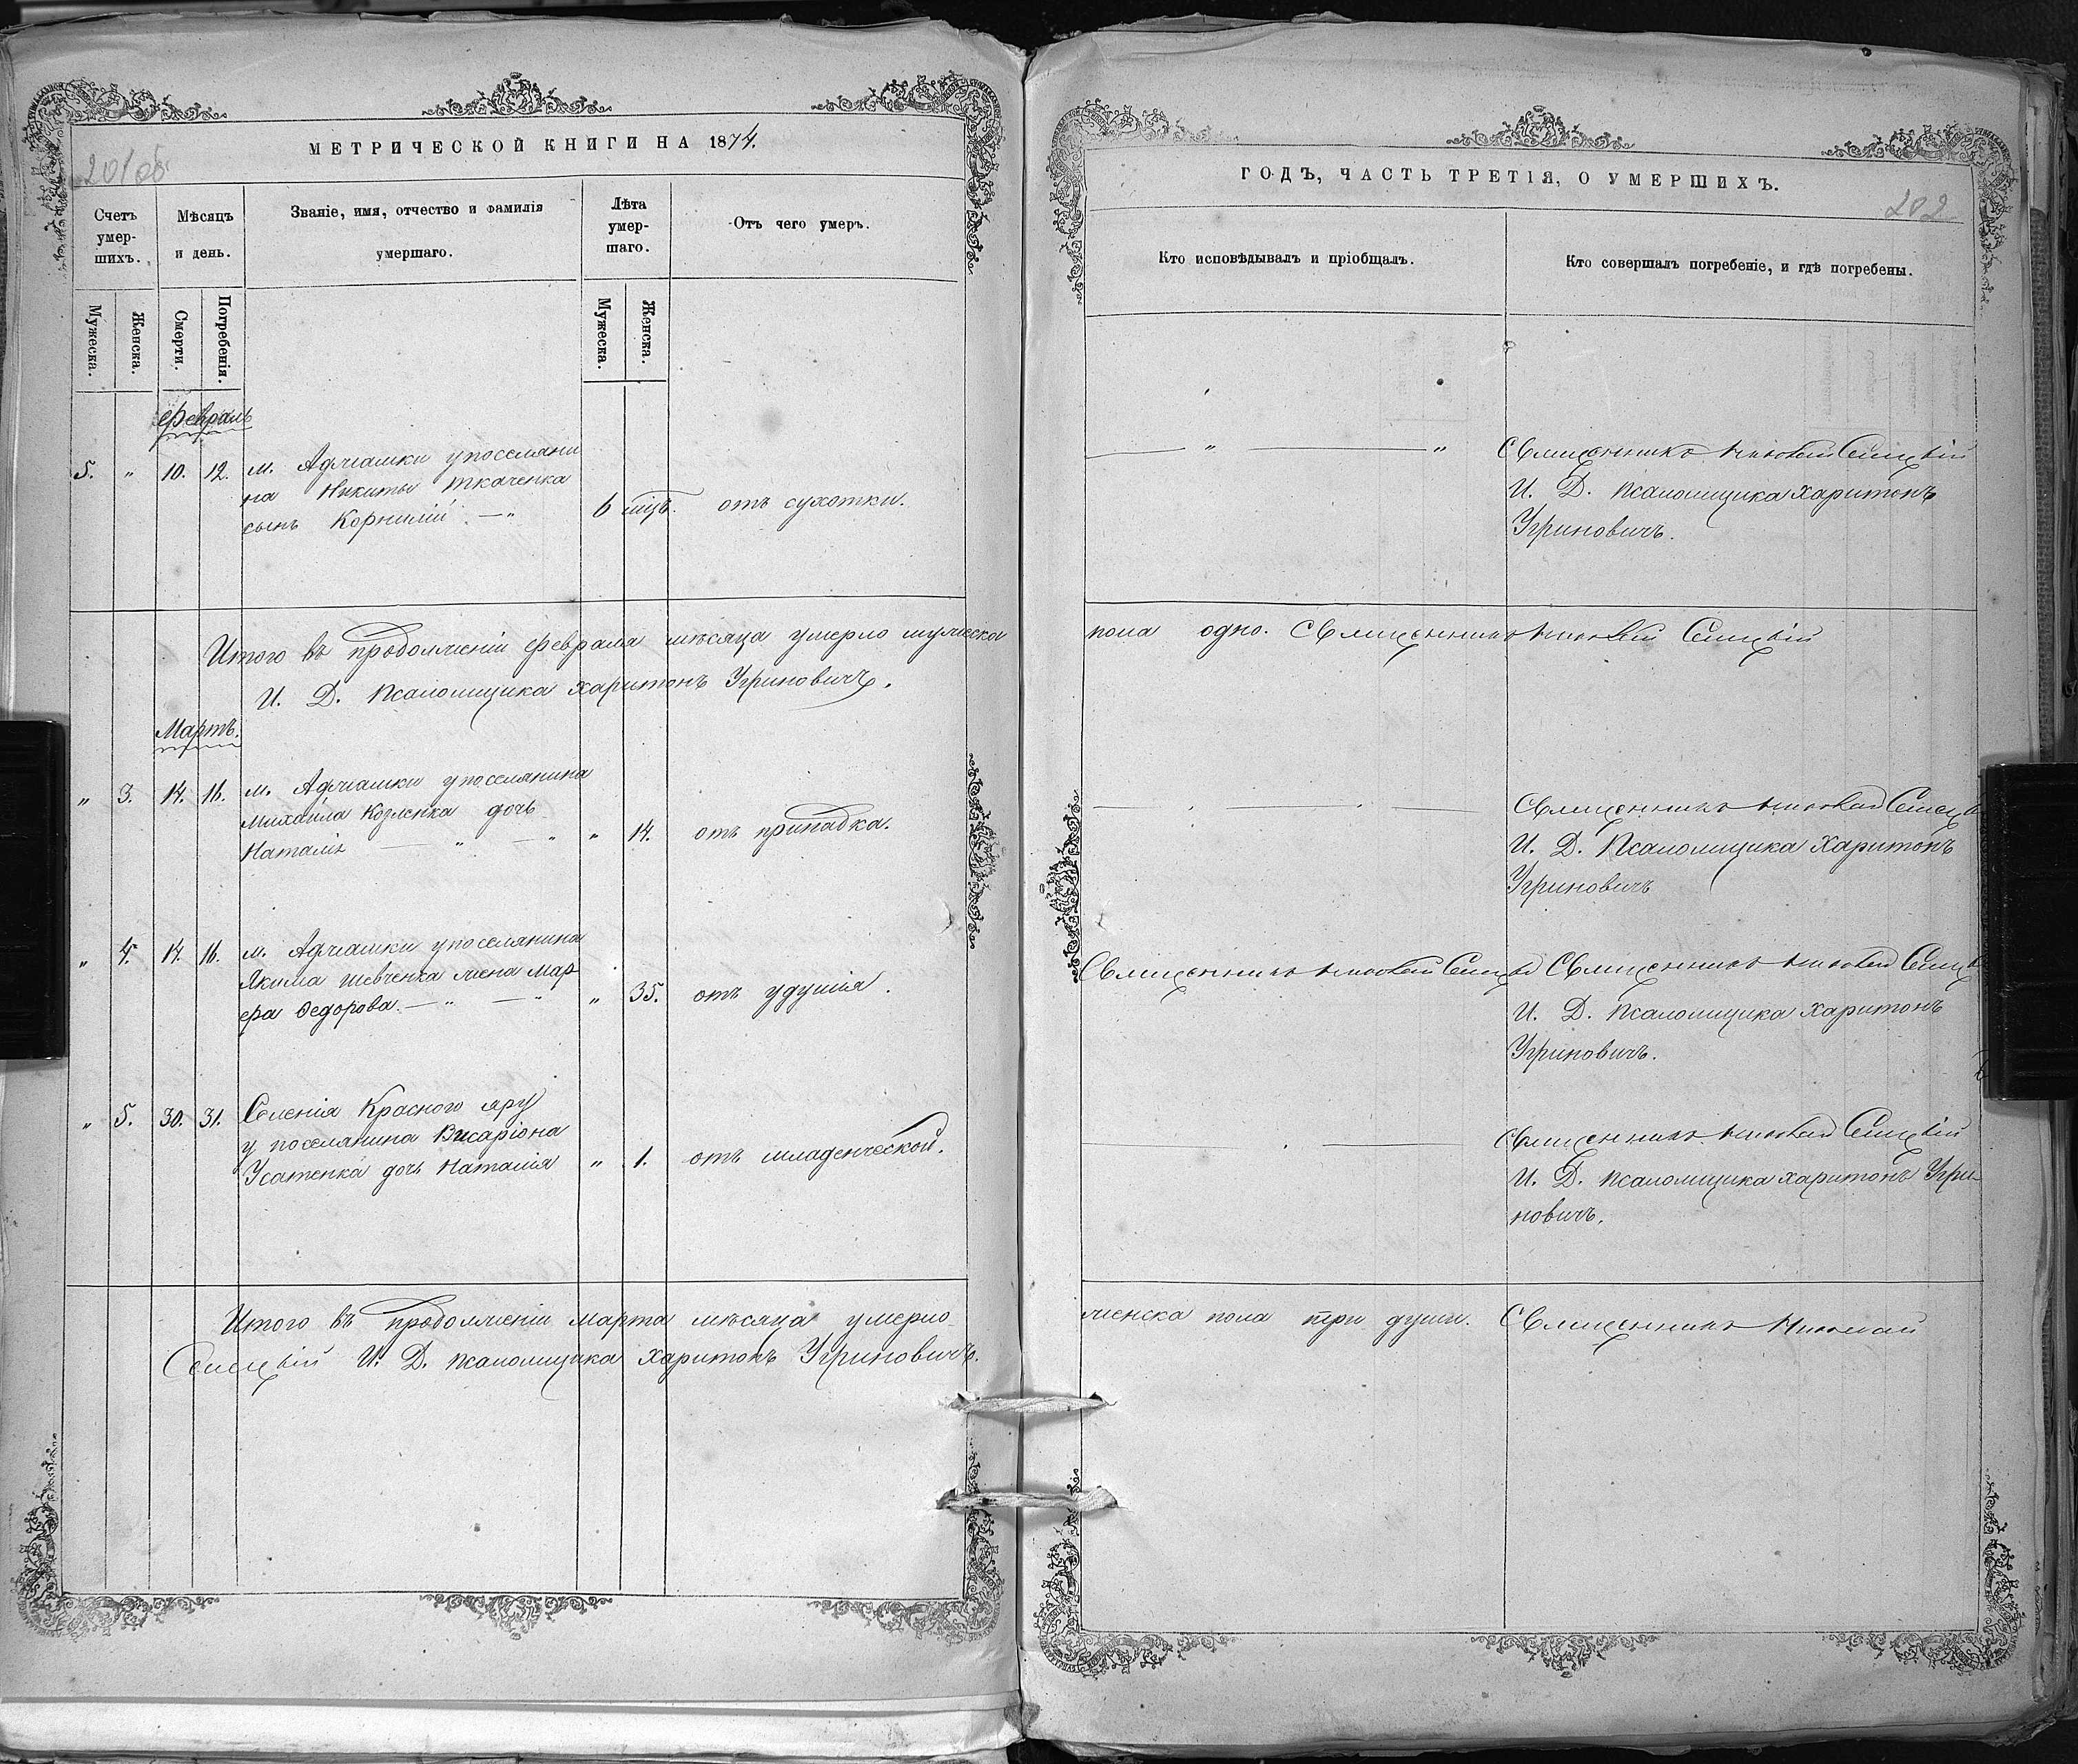 МЕТРИЧЕСКОЙ КНИГИ НА 1874.
201об
Счетъ умер- шихъ.
Мѣсяцъ и день.
Званіе, имя, отчество и фамилія умершаго.
Лѣта умер- шаго.
Отъ чего умеръ.
Мужеска.
Женска.
Смерти.
Погребенія.
Мужеска.
Женска.
Февраль
5. „ 10. 12. м. Аджамки упоселяни
на Никиты Ткаченка
сынъ Корнилій — „ 6 мцъ. отъ сухотки.
Итого въ продолженіи февраля мѣсяца умерло мужеска
И. Д. Псаломщика Харитонъ Угриновичъ.
Мартъ.
„ 3. 14. 16. м. Аджамки упоселянина
Михаила Козленка дочь
Наталія — „ — „ „ 14. отъ припадка.
„ 4. 14. 16. м. Аджамки упоселянина
Якима Шевченка жена Мар
фа Федорова. — „ — „ „ 35. отъ удушія.
„ 5. 30. 31. Селенія Красного яру
у поселянина Висаріона
Усатенка дочь Наталія „ 1. отъ младенческой.
Итого въ продолженіи марта мѣсяца умерло
Сѣицкій И. Д. Псаломщика Харитонъ Угриновичъ.
ГОДЪ, ЧАСТЬ ТРЕТІЯ, О УМЕРШИХЪ.
202
Кто исповѣдывалъ и пріобщалъ.
Кто совершалъ погребеніе, и гдѣ погребены.
— „ — „ Священникъ Николай
И. Д. Псаломщика Харитонъ
Угриновичъ.
пола одно. Священникъ Николай
Священникъ Николай
И. Д. Псаломщика Харитонъ
Угриновичъ
Священникъ Николай Священникъ Николай
И. Д. Псаломщика Харитонъ
Угриновичъ.
Священникъ Николай
И. Д. Псаломщика Харитонъ Угри-
новичъ.
женска пола три души. Священникъ Николай